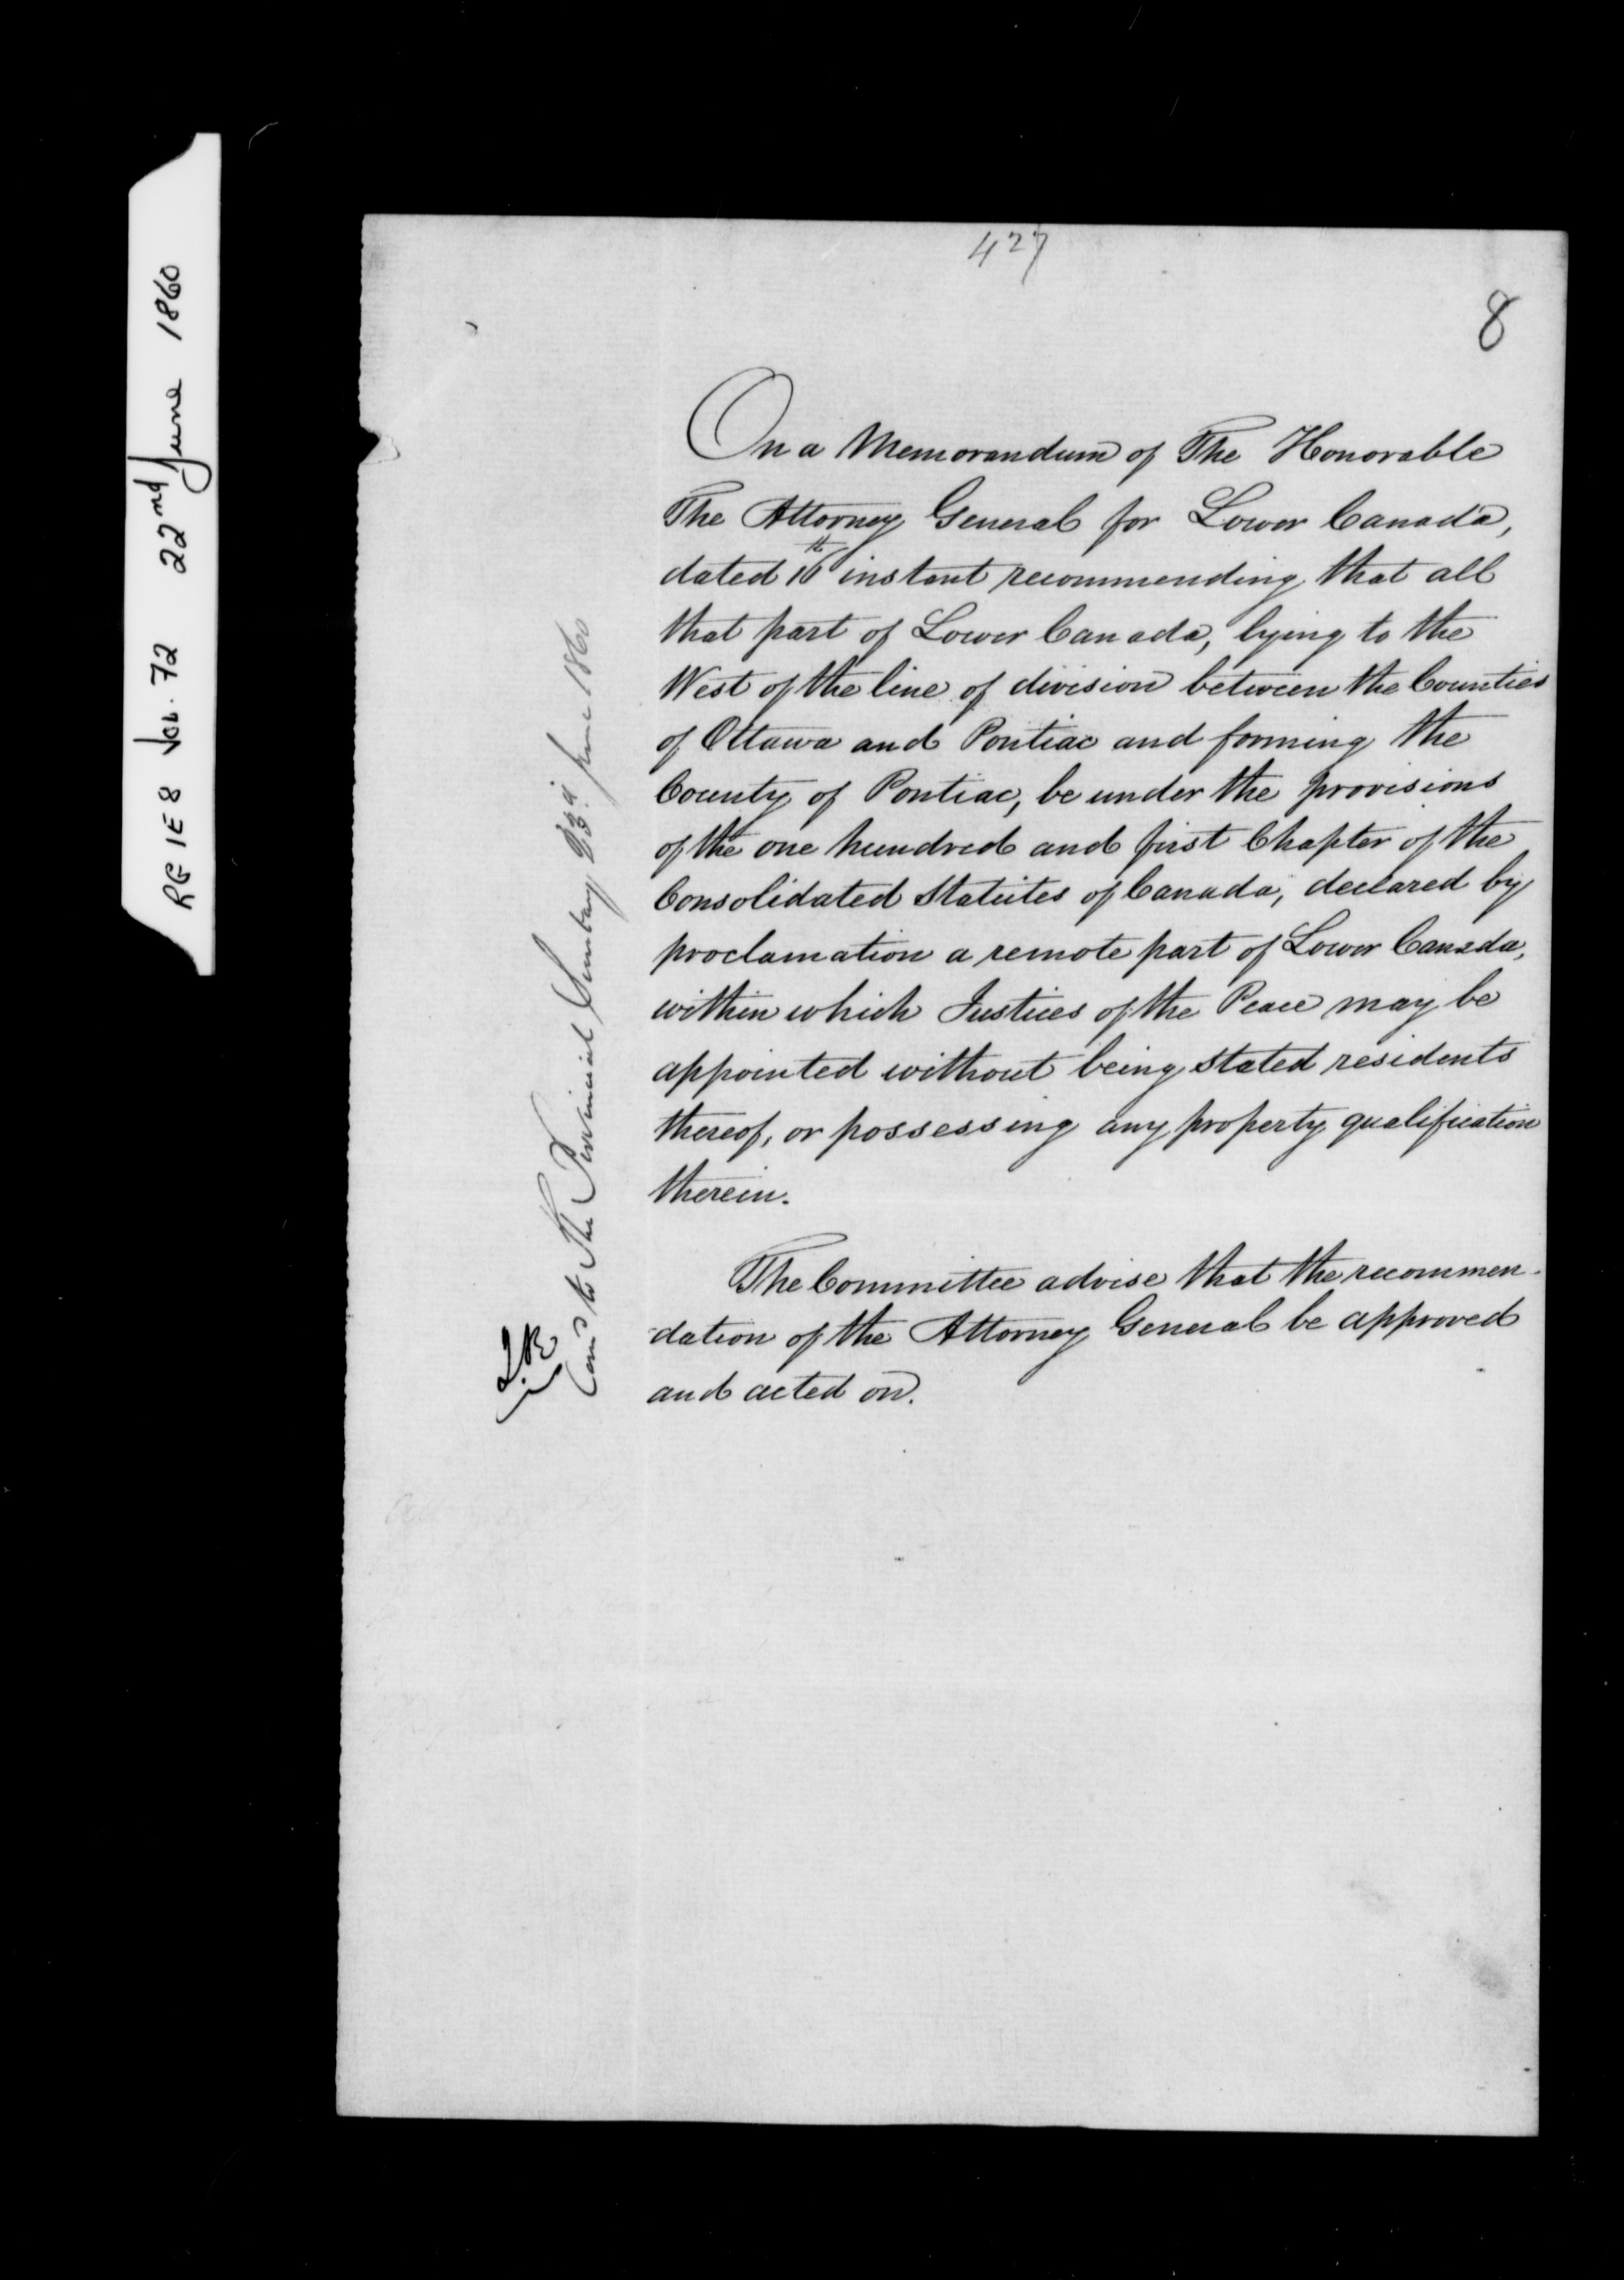 RG 1E8 Vol. 72 22nd June 1860
427
8
On a Memorandum of The Honorable
The Attorney General for Lower Canada,
dated 16th instant recommending that all
that part of Lower Canada, lying to the
West of the line of division between the Counties
of Ottawa and Pontiac and forming the
County of Pontiac, be under the provisions
of the one hundred and first Chapter of the
Consolidated Statutes of Canada, declared by
proclamation a remote part of Lower Canada,
within which Justices of the Peace may be
appointed without being stated residents
thereof, or possessing any property qualification
therein.
The Committee advise that the recommen-
-dation of the Attorney General be approved
and acted on.
to The Provincial Secretary 23d June 1860